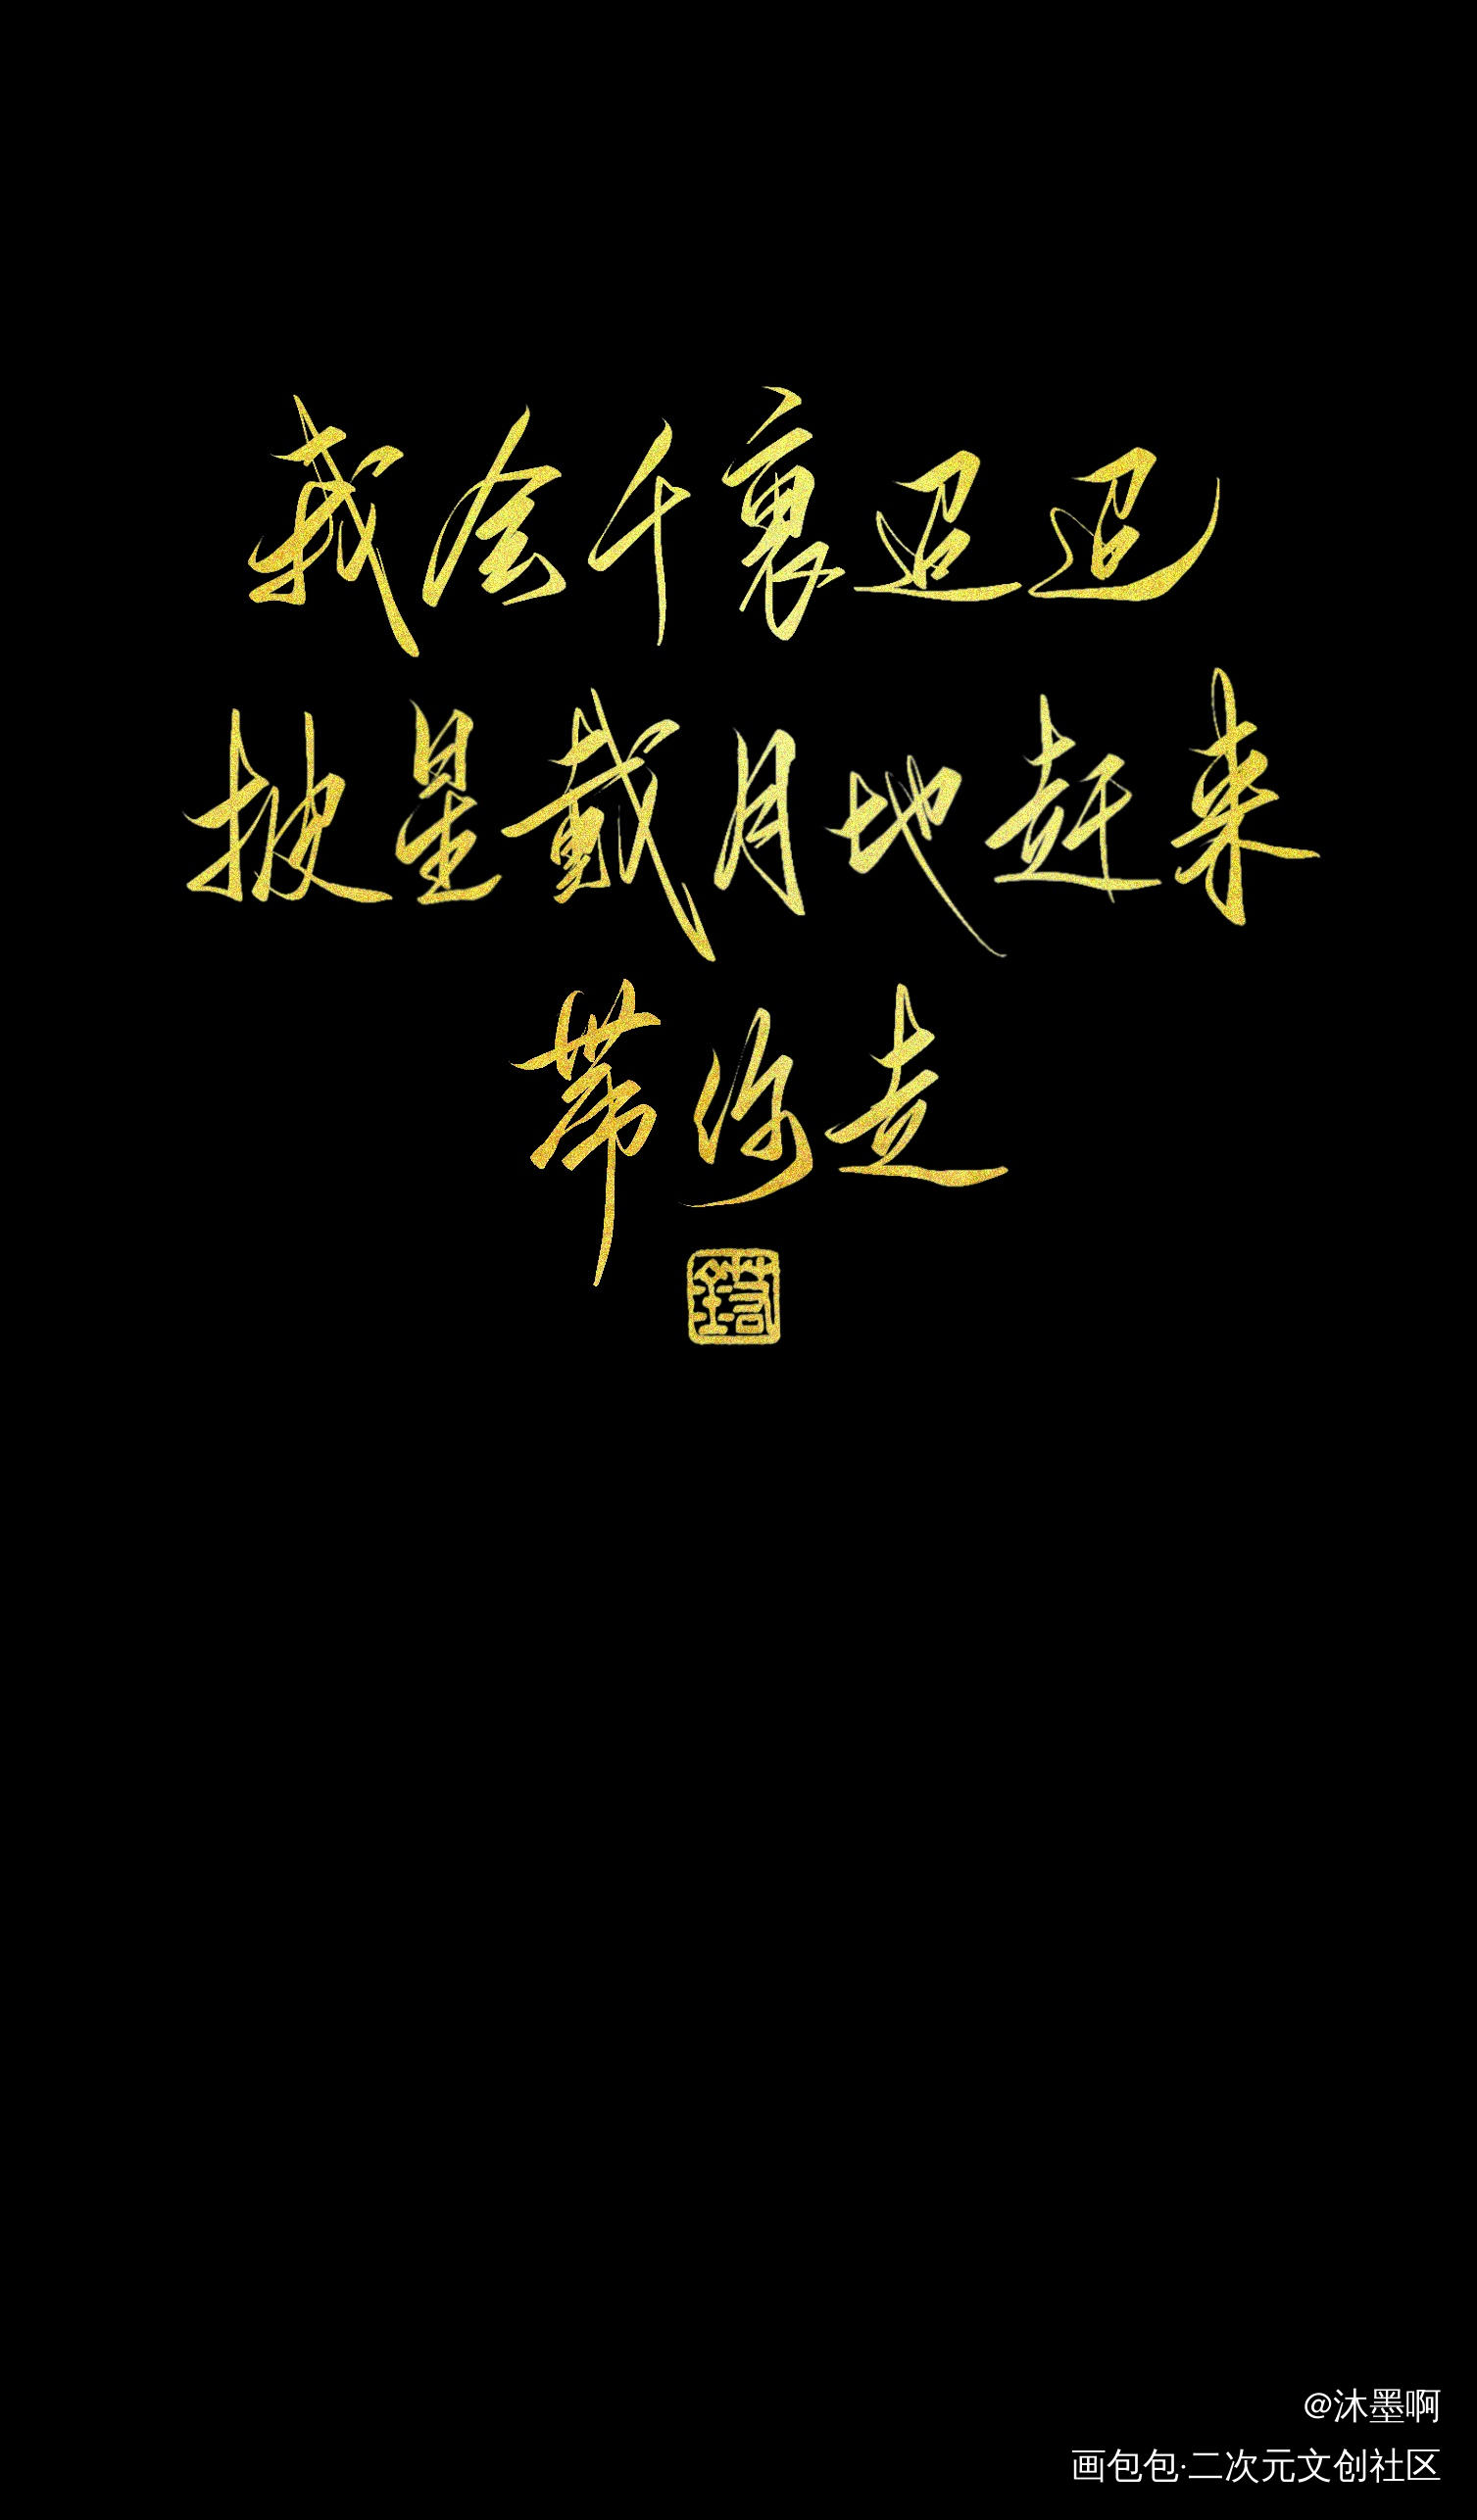 我会千里迢迢
披星戴月地赶来
带你走
@沐墨啊
画包包·二次元文创社区